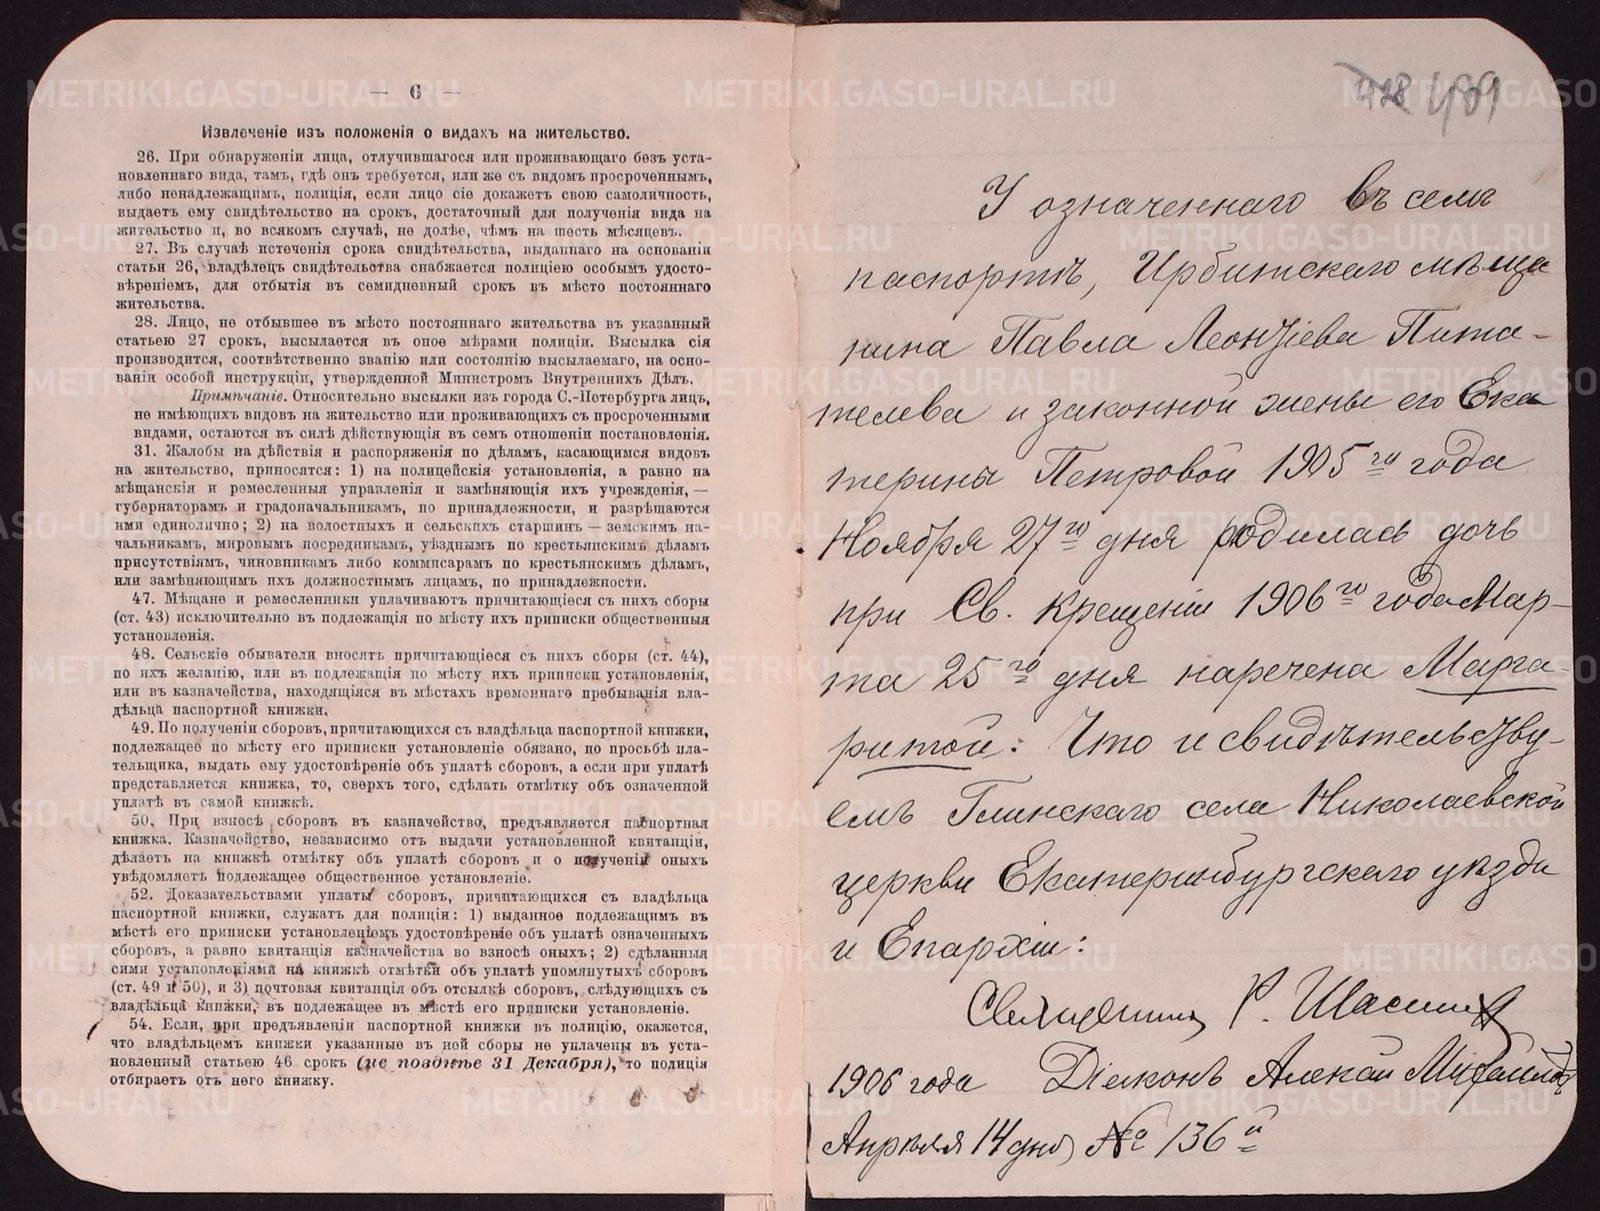 — 6 —
Извлеченіе изъ положенія о видахъ на жительство.
26. При обнаруженіи лица, отлучившагося или проживающаго безъ уста-
новленнаго вида, тамъ, гдѣ онъ требуется, или же съ видомъ просроченнымъ,
либо ненадлежащимъ, полиція, если лицо сіе докажетъ свою самоличность,
выдаетъ ему свидѣтельство на срокъ, достаточный для полученія вида на
жительство и, во всякомъ случаѣ, не долѣе, чѣмъ на шесть мѣсяцевъ.
27. Въ случаѣ истеченія срока свидѣтельства, выданнаго на основаніи
статьи 26, владѣлецъ свидѣтельства снабжается полиціею особымъ удосто-
вѣреніемъ, для отбытія въ семидневный срокъ въ мѣсто постояннаго
жительства.
28. Лицо, не отбывшее въ мѣсто постояннаго жительства въ указанный
статьею 27 срокъ, высылается въ оное мѣрами полиціи. Высылка сія
производится, соотвѣтственно званію или состоянію высылаемаго, на осно-
ваніи особой инструкціи, утвержденной Министромъ Внутреннихъ Дѣлъ.
Примѣчаніе. Относительно высылки изъ города С.-Петербурга лицъ,
не имѣющихъ видовъ на жительство или проживающихъ съ просроченными
видами, остаются въ силѣ дѣйствующія въ семъ отношеніи постановленія.
31. Жалобы на дѣйствія и распоряженія по дѣламъ, касающимся видовъ
на жительство, приносятся: 1) на полицейскія установленія, а равно на
мѣщанскія и ремесленныя управленія и замѣняющія ихъ учрежденія, —
губернаторамъ и градоначальникамъ, по принадлежности, и разрѣшаются
ими единолично; 2) на волостныхъ и сельскихъ старшинъ — земскимъ на-
чальникамъ, мировымъ посредникамъ, уѣзднымъ по крестьянскимъ дѣламъ
присутствіямъ, чиновникамъ либо коммисарамъ по крестьянскимъ дѣламъ,
или замѣняющимъ ихъ должностнымъ лицамъ, по принадлежности.
47. Мѣщане и ремесленники уплачиваютъ причитающіеся съ нихъ сборы
(ст. 43) исключительно въ подлежащія по мѣсту ихъ приписки общественныя
установленія.
48. Сельскіе обыватели вносятъ причитающіеся съ нихъ сборы (ст. 44),
по ихъ желанію, или въ подлежащія по мѣсту ихъ приписки установленія,
или въ казначейства, находящіяся въ мѣстахъ временнаго пребыванія вла-
дѣльца паспортной книжки.
49. По полученіи сборовъ, причитающихся съ владѣльца паспортной книжки,
подлежащее по мѣсту его приписки установленіе обязано, по просьбѣ пла-
тельщика, выдать ему удостовѣреніе объ уплатѣ сборовъ, а если при уплатѣ
представляется книжка, то, сверхъ того, сдѣлать отмѣтку объ означенной
уплатѣ въ самой книжкѣ.
50. При взносѣ сборовъ въ казначейство, предъявляется паспортная
книжка. Казначейство, независимо отъ выдачи установленной квитанціи,
дѣлаетъ на книжкѣ отмѣтку объ уплатѣ сборовъ и о полученіи оныхъ
увѣдомляетъ подлежащее общественное установленіе.
52. Доказательствами уплаты сборовъ, причитающихся съ владѣльца
паспортной книжки, служатъ для полиціи: 1) выданное подлежащимъ въ
мѣстѣ его приписки установленіемъ удостовѣреніе объ уплатѣ означенныхъ
сборовъ, а равно квитанція казначейства во взносѣ оныхъ; 2) сдѣланныя
сими установленіями на книжкѣ отмѣтки объ уплатѣ упомянутыхъ сборовъ
(ст. 49 и 50), и 3) почтовая квитанція объ отсылкѣ сборовъ, слѣдующихъ съ
владѣльца книжки, въ подлежащее въ мѣстѣ его приписки установленіе.
54. Если, при предъявленіи паспортной книжки въ полицію, окажется,
что владѣльцемъ книжки указанные въ ней сборы не уплачены въ уста-
новленный статьею 46 срокъ (не позднѣе 31 Декабря), то полиція
отбираетъ отъ него книжку.
У означеннаго въ семъ
паспортѣ, Ирбитскаго мѣща
нина Павла Леонтіева Пита-
телева и законной жены его Ека
терины Петровой 1905го года
Ноября 27го дня родилась дочь
при Св. крещеніи 1906го года Мар-
та 25го дня наречена Марга-
ритой: Что и свидѣтельству-
емъ Глинскаго села Николаевской
церкви Екатеринбургскаго уѣзда
и Епархіи:
Священникъ
1906 года Діаконъ Алексій
Апрѣля 14 дня № 136й
METRIKI.GASO-URAL.RU